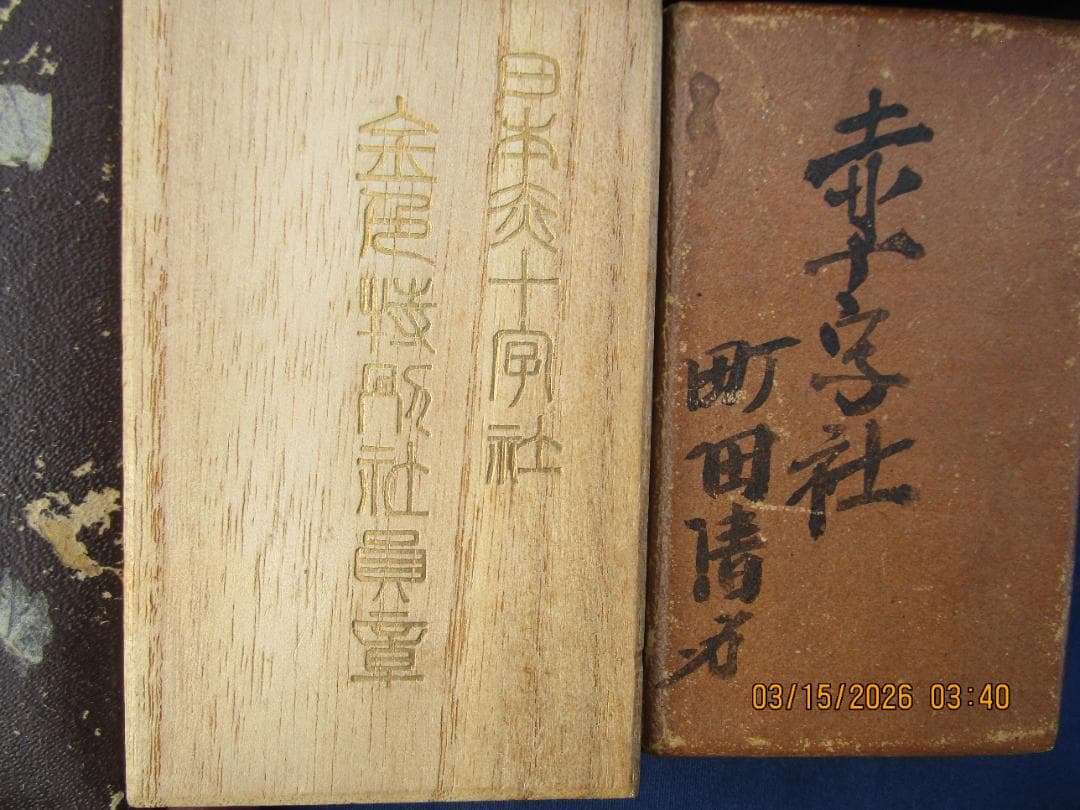 日本赤十字社
金色特別社員章
赤十字社
町田清
03/15/2026 03:40